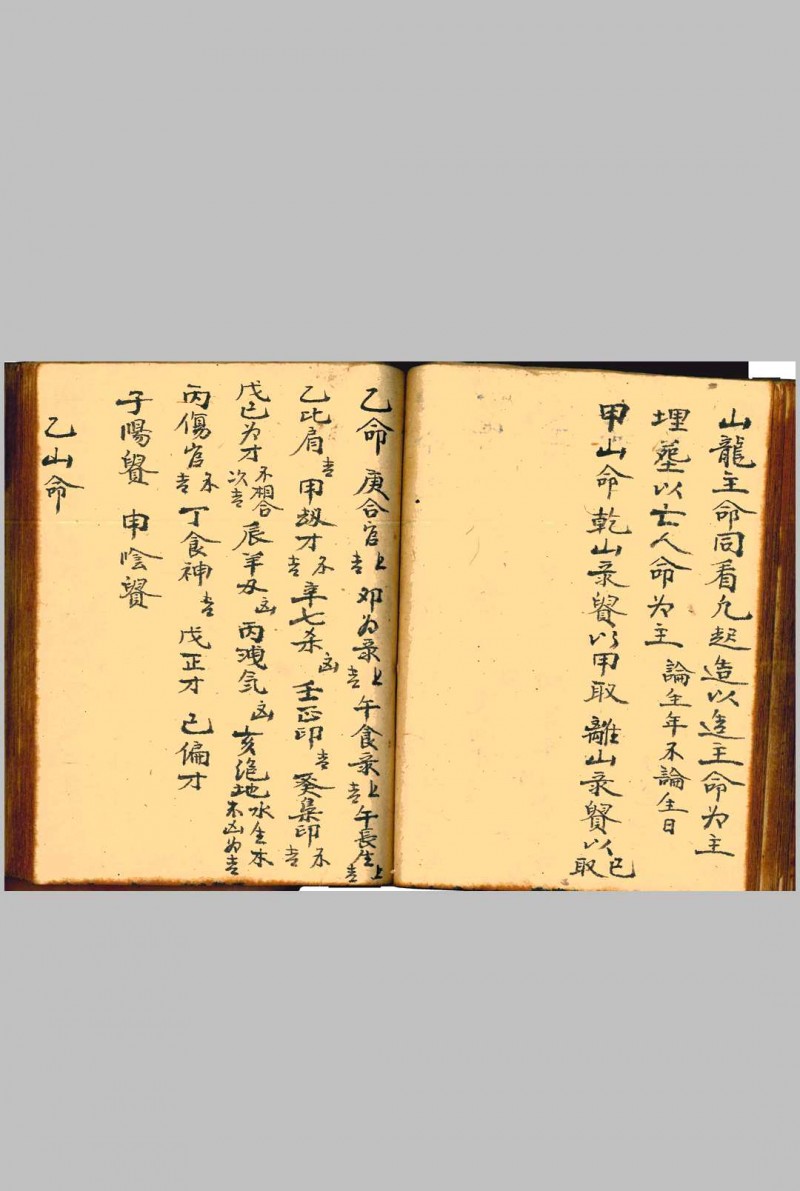 山龍主命同看凢起造以造主命为主
埋塟以亡人命为主 論生年不論生日
甲山命 乾山录贤以甲取 離山录贤以己取
乙命 庚合官上吉 夘为录上吉 午食录上吉 午長生上吉
乙比肩吉 甲刼才不吉 辛七杀凶 壬正印吉 癸梟印不吉
戊己为才不相合次吉 辰羊刃凶 丙洩気凶 亥绝地水生木木凶为吉
丙傷官不吉 丁食神吉 戊正才 己偏才
子陽贤 申陰贤
乙山命